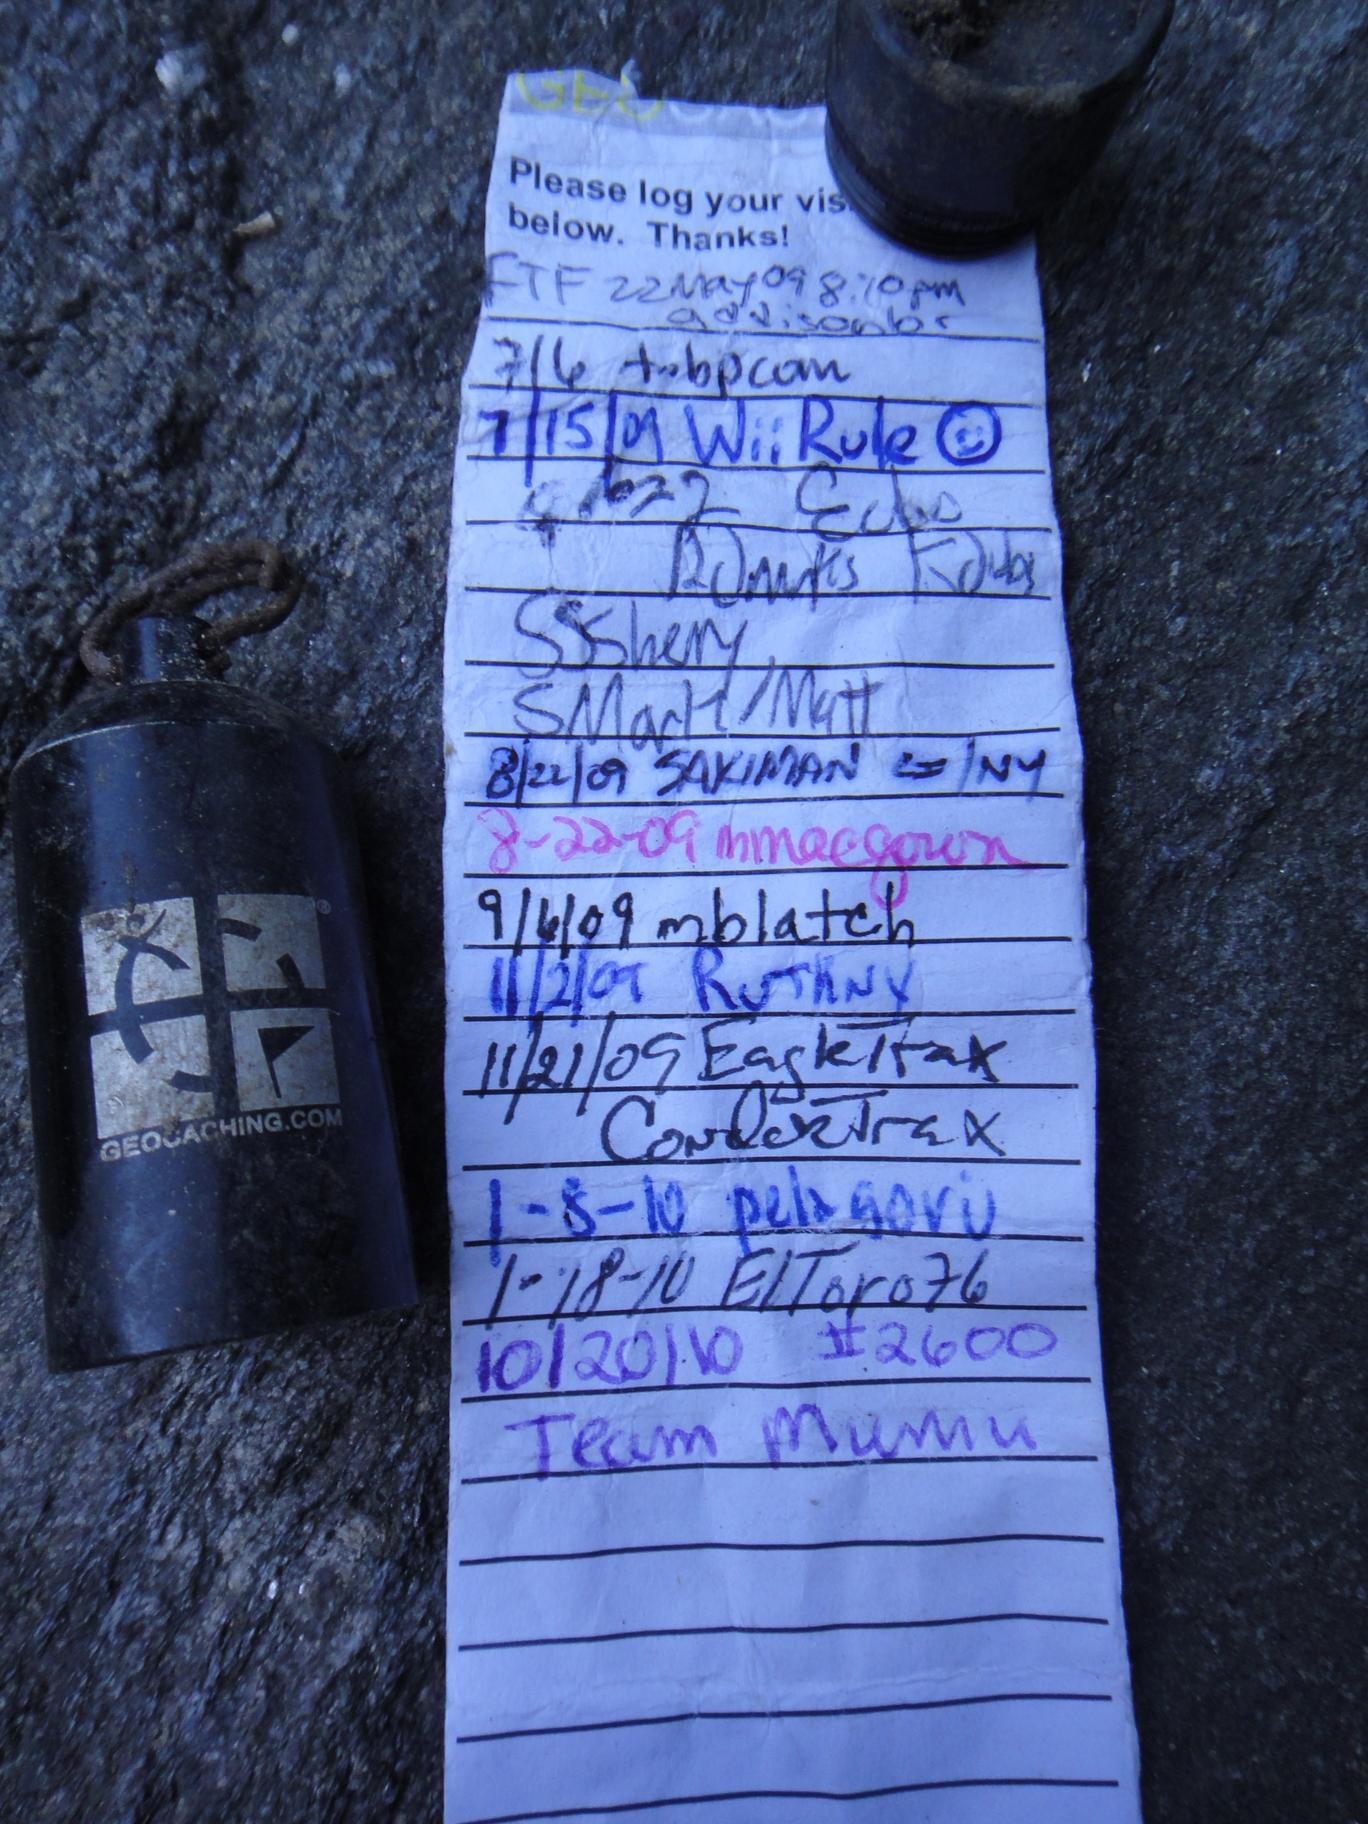 GEO
Please log your vis
below. Thanks!
FTF 22 May 09 8:10pm
7/6
7/15/09 Wii Rule
SSSherry
SMark/Matt
8/22/09 SAKIMAN /NY
8-22-09 mmacgown
9/6/09 mblatch
11/2/09 RUTHNY
11/21/09 EagleTrax
CondorTrax
1-8-10
1-18-10 ElToro76
10/20/10 #2600
Team Mumu
GEOCACHING.COM